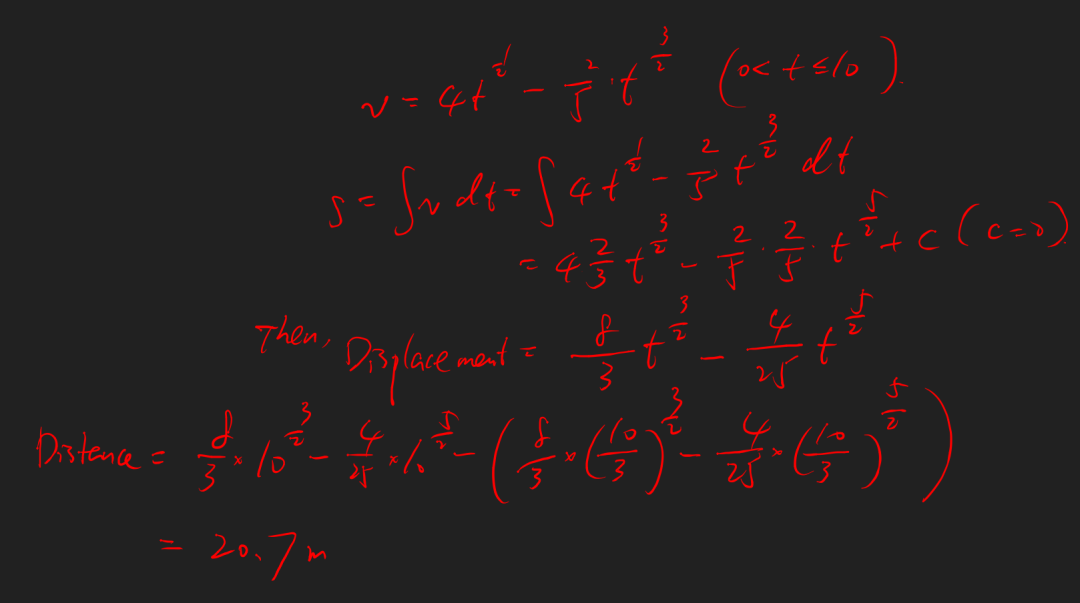 v = 4t^{1/2} - \frac{2}{5} \cdot t^{3/2} (0 < t ≤ 10).
s = ∫ v dt = ∫ 4t^{1/2} - \frac{2}{5} t^{3/2} dt
= 4 \frac{2}{3} t^{3/2} - \frac{2}{5} \cdot \frac{2}{5} \cdot t^{5/2} + C (C = 0).
Then, Displacement = \frac{8}{3} t^{3/2} - \frac{4}{25} t^{5/2}
Distence = \frac{8}{3} × 10^{3/2} - \frac{4}{25} × 10^{5/2} - (\frac{8}{3} × (\frac{10}{3})^{3/2} - \frac{4}{25} × (\frac{10}{3})^{5/2})
= 20.7 m